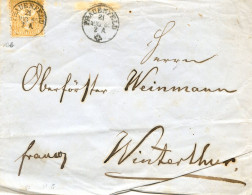 FRAUENFELD
FRAUENFELD
21
Herrn
Oberförster Weinmann
franco
Winterthur.